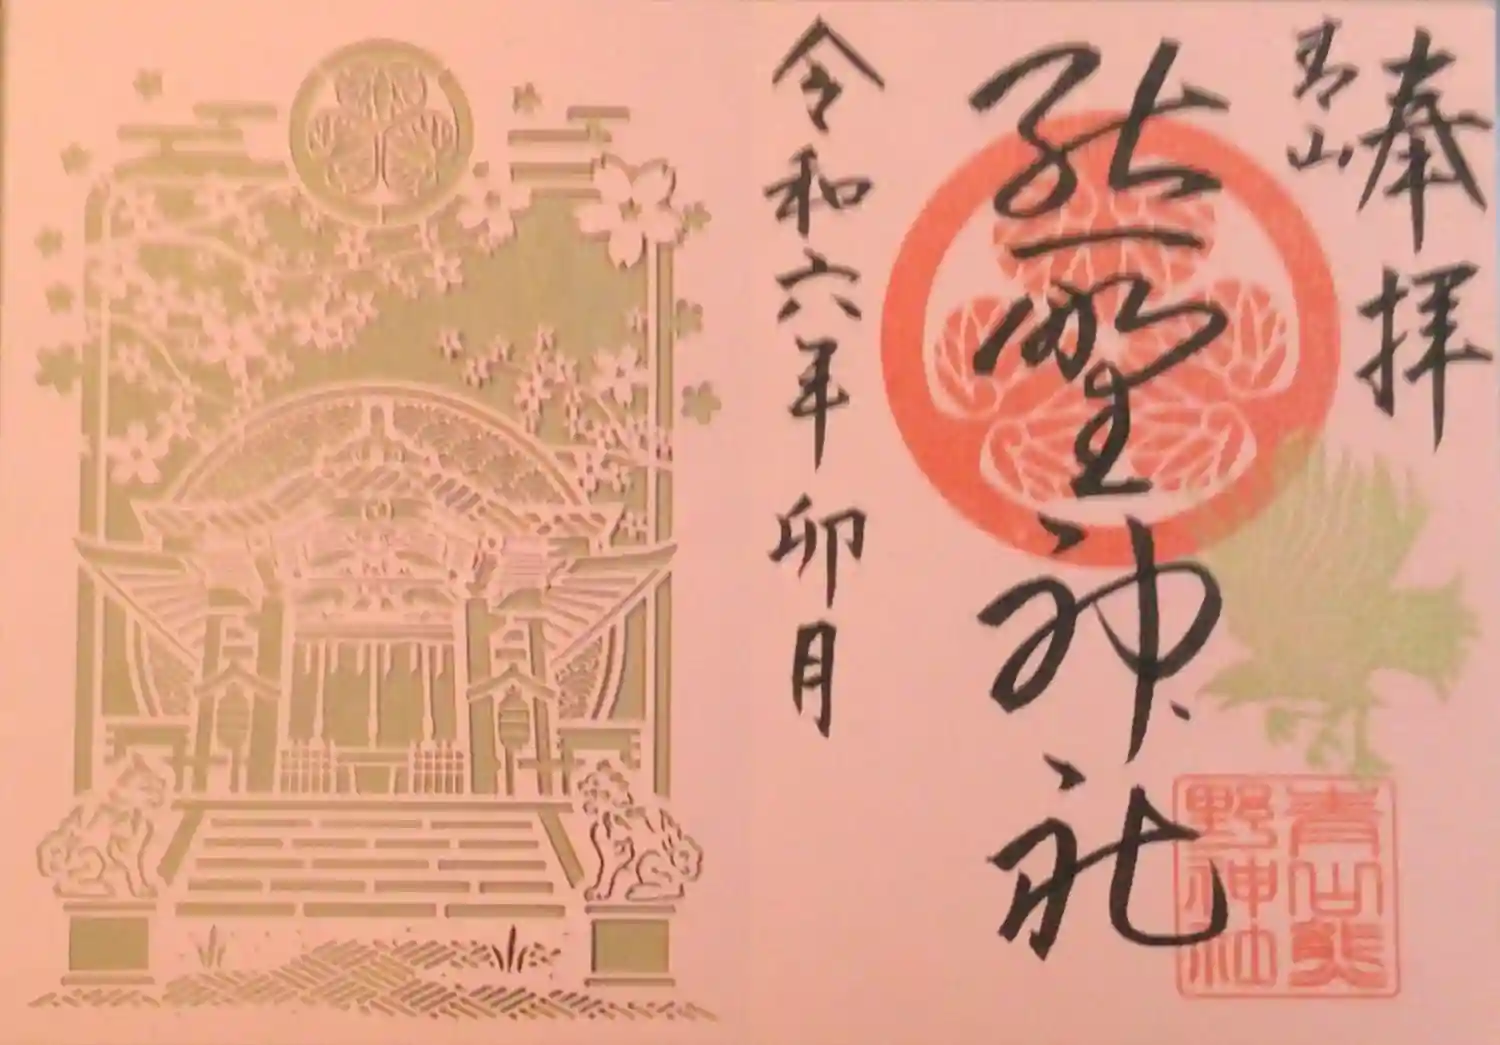 奉拝
青山
熊野神社
令和六年 卯月
青山熊
野神社